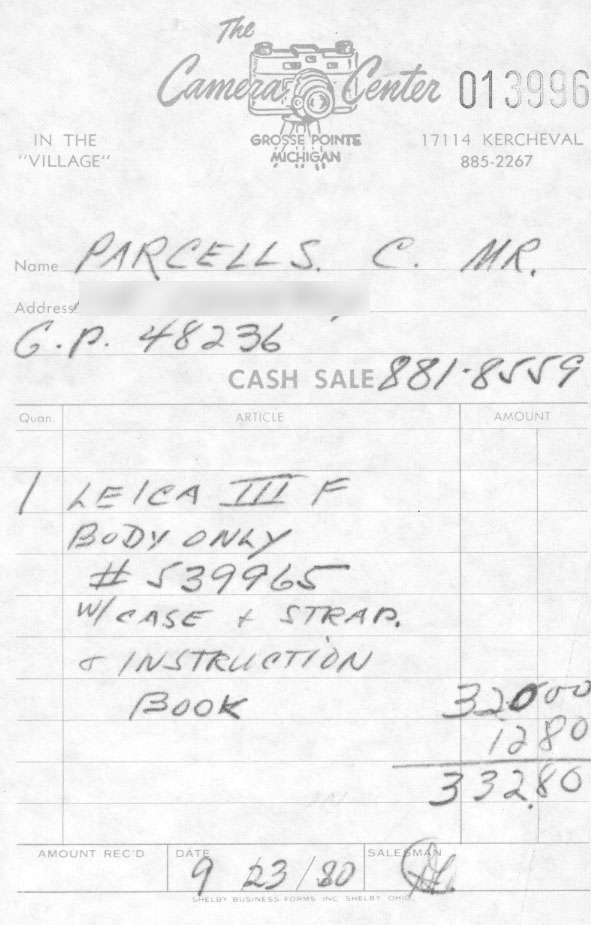 The
Camera Center 013996
GROSSE POINTE
MICHIGAN
IN THE
"VILLAGE"
17114 KERCHEVAL
885-2267
Name PARCELLS. C. MR.
Address
G.P. 48236
CASH SALE 881-8559
Quan. ARTICLE AMOUNT
1 LEICA III F
BODY ONLY
# 539965
W/ CASE + STRAP.
& INSTRUCTION
BOOK 320 00
12 80
332.80
AMOUNT REC'D DATE SALESMAN
9 23/80
SHELBY BUSINESS FORMS INC SHELBY OHIO.